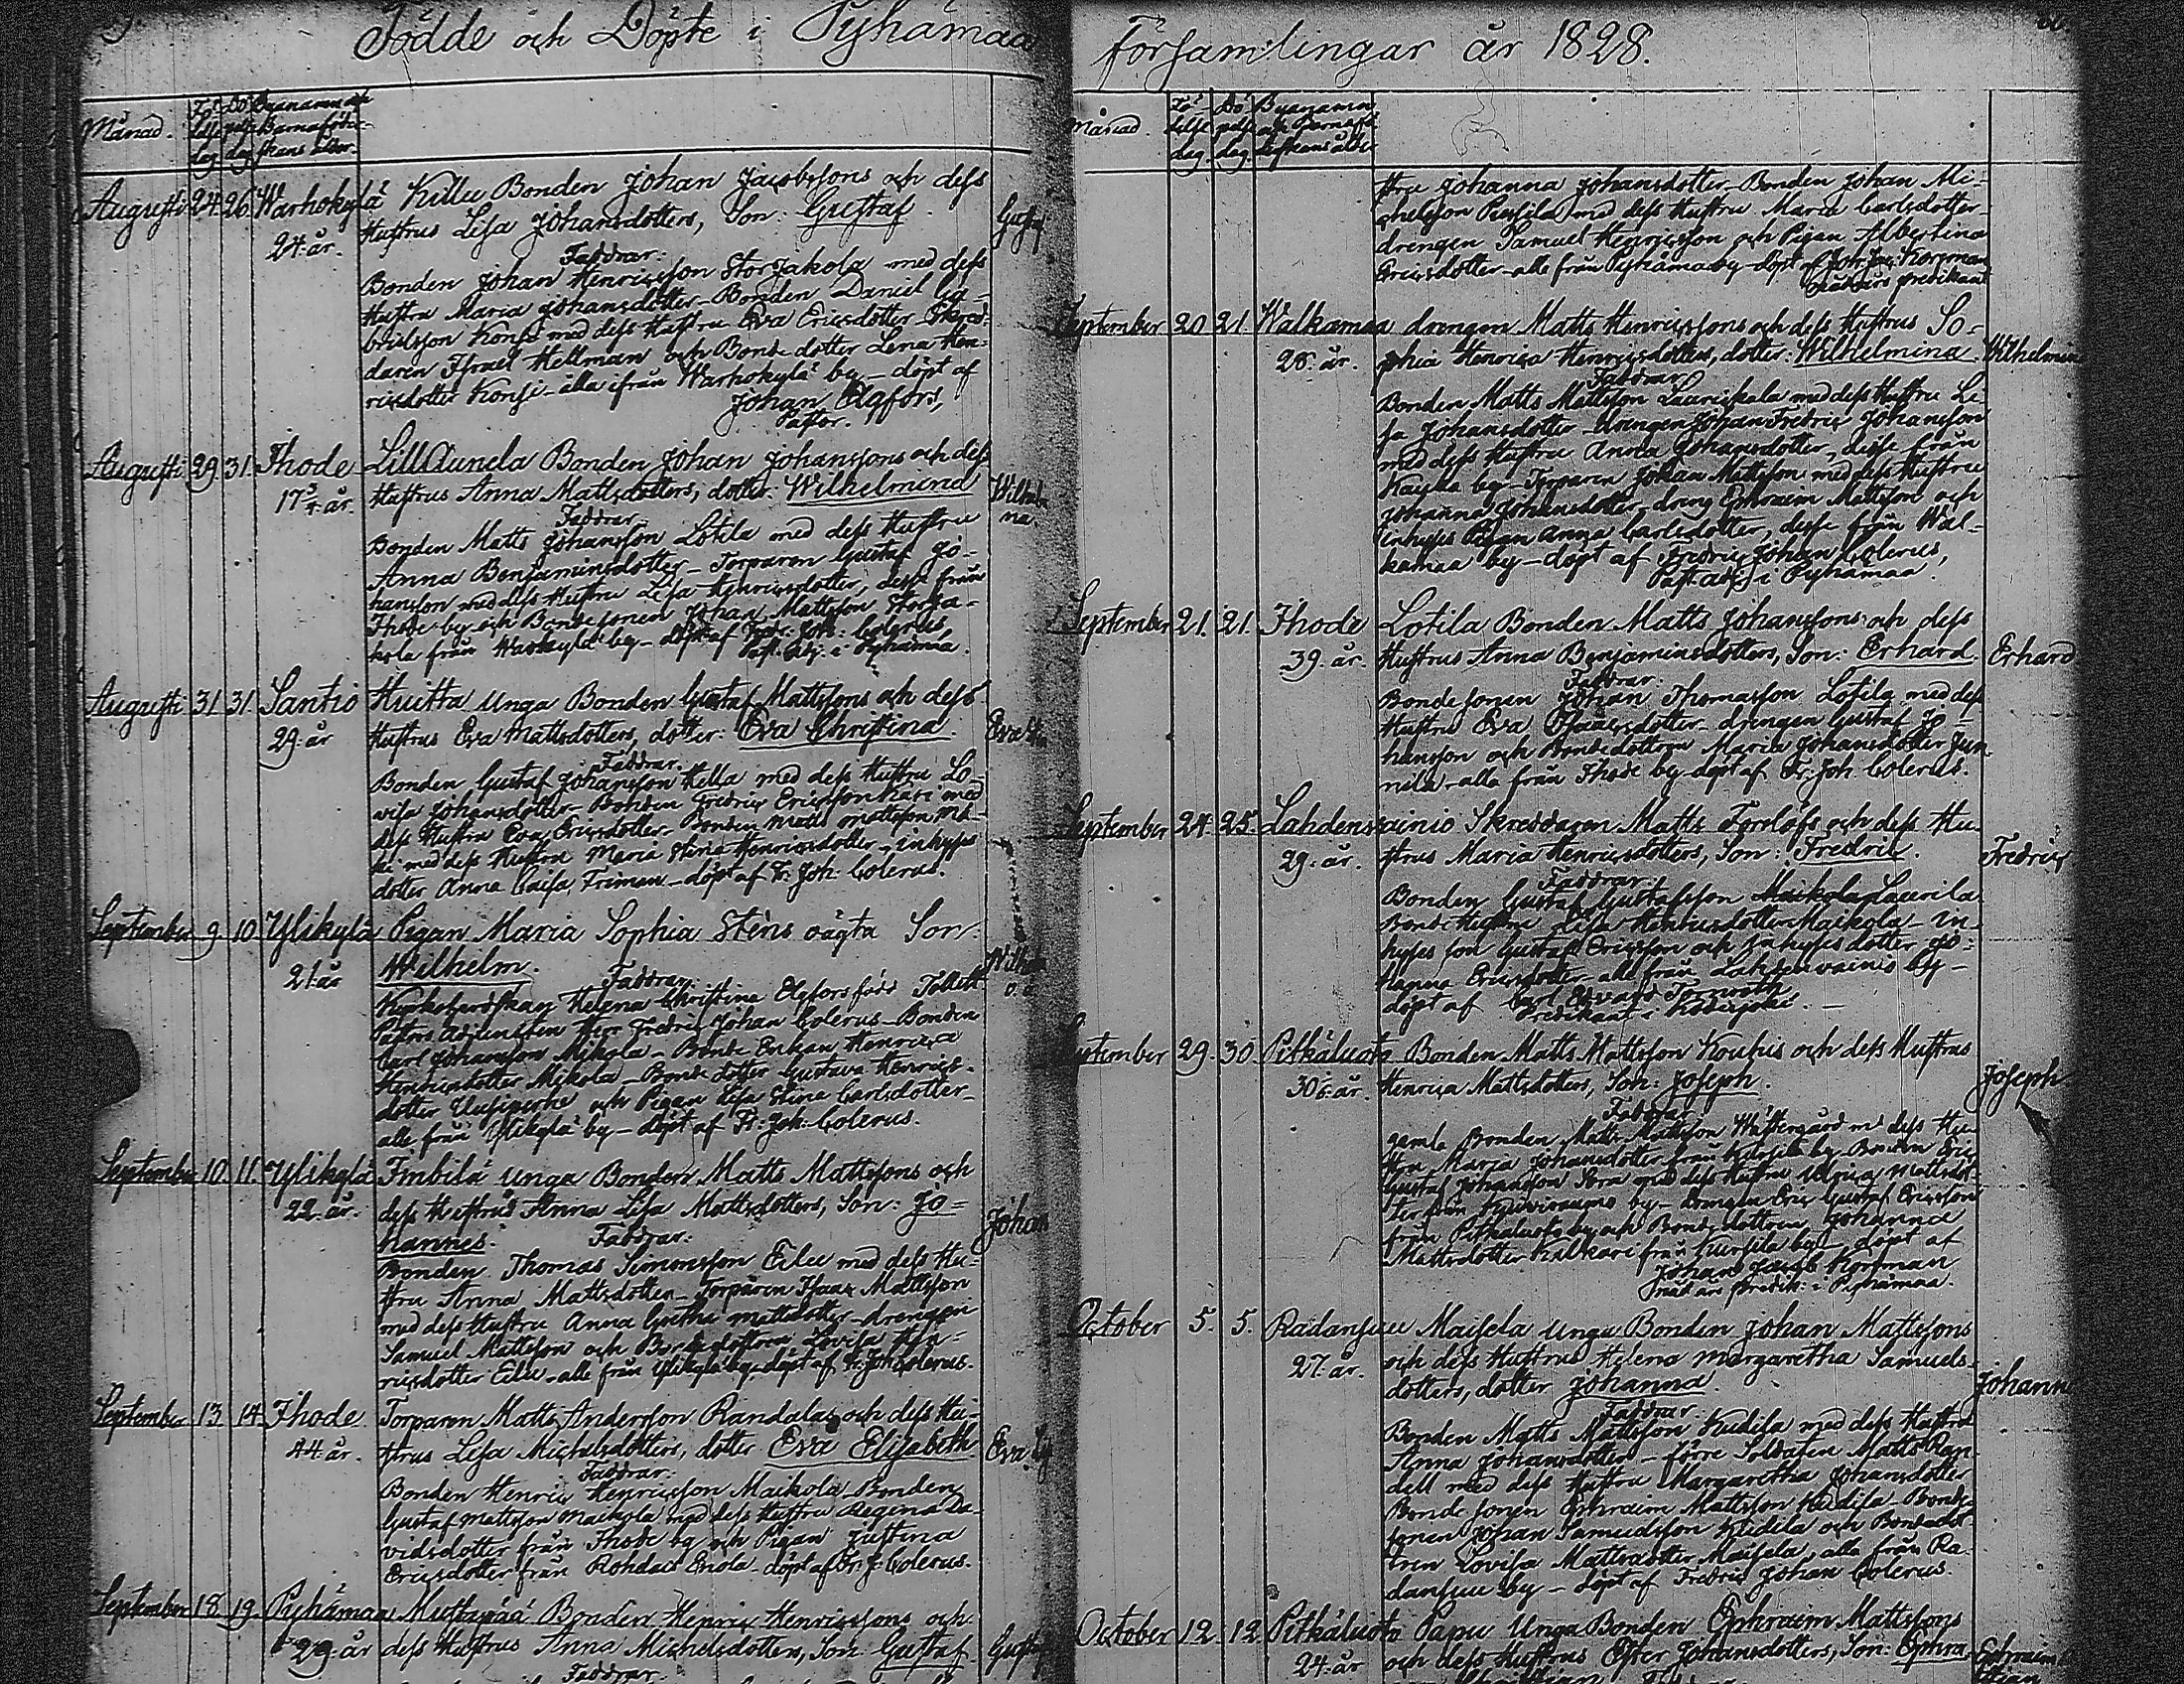 Födde och Döpte i Pyhämaa
Månad. Fö- Dö- Byanamn och
delse pelse Barnaföder-
dag dag skans ålder.
Augusti 24 26 Warhokylä Killu Bonden Johan Jacobssons och dess Gustaf
24. år. Hustrus Lisa Johansdotters, Son: Gustaf.
Faddrar:
Bonden Johan Henricsson Storjakola med dess
Hustru Maria Johansdotter - Bonden Daniel Ga-
brielsson Konsi med dess Hustru Eva Ericsdotter - Skred-
daren Israel Hellman och Bonde dotter Lena Hen-
ricsdotter Konsi - alla ifrån Warhokylä by - döpt af
Johan Elgfors,
Pastor.
Augusti 29 31 Ihode Lill Aunela Bonden Johan Johanssons och dess
17 3/4 år. Hustrus Anna Mattsdotters, dotter: Wilhelmina Wilhelmi
na.
Faddrar
Bonden Matts Johansson Lotila med dess Hustru
Anna Benjaminsdotter - Torparen Gustaf Jo-
hansson med dess Hustru Lisa Henricsdotter, desse från
Ihode by och Bondesonen Johan Mattsson Storja-
kola från Warhokylä by - döpt af Fredr. Joh: Colerus
Past. Adj. i Pyhämaa.
Augusti 31 31 Santio Huitta Unga Bonden Gustaf Mattssons och dess
29. år Hustrus Eva Mattsdotters, dotter: Eva Christina. Eva
Faddrar.
Bonden Gustaf Johansson Hella med dess Hustru Lo-
visa Johansdotter - Bonden Fredric Ericsson Kari med
dess Hustru Eva Ericsdotter - Bonden Matts Mattsson Mä-
ki med dess Hustru Maria Stina Henricsdotter - inhyses
dotter Anna Caisa Friman - döpt af Fr. Joh: Colerus.
September 9 10 Ylikylä Pigan Maria Sophia Sténs oägta Son
21. år Wilhelm. Faddrar. Wilhelm
o. ä.
Kyrkoherdskan Helena Christina Elgfors född Tollett
Pastors Adjuncten Herr Fredric Johan Colerus - Bonden
Carl Johansson Mikola - Bonde Enkan Henrica
Henricsdotter Mikola - Bonde dotter Gustava Henrics-
dotter Uusiperhe och Pigan Lisa Stina Carlsdotter -
alle från Ylikylä by - döpt af Fr: Joh: Colerus.
September 10 11. Ylikylä Finbilä Unga Bonden Matts Mattssons och
22. år. dess Hustrus Anna Lisa Mattsdotters, Son: Jo- Johan
hannes. Faddrar:
Bonden Thomas Simonsson Eilu med dess Hu-
stru Anna Mattsdotter - Torparen Isaac Mattsson
med dess Hustru Anna Gretha Mattsdotter - drengen
Samuel Mattsson och Bondedottren Lovisa Hen-
ricsdotter Eilu - alle från Ylikylä by - döpt af Fr. Joh. Colerus.
September 13 14 Ihode Torparen Matts Andersson Randalas och dess Hu-
44. år. strus Lisa Michelsdotters, dotter Eva Elisabeth. Eva
Faddrar:
Bonden Henric Henricsson Maikola - Bonden
Gustaf Mattsson Maikola med dess Hustru Regina Da-
vidsdotter från Ihode by och Pigan Justina
Ericsdotter från Rohdais Eriola - döpt af Fr. J. Colerus.
September 18 19 Pyhämaa Mustamaa Bonden Henric Henricssons och
29. år dess Hustrus Anna Michelsdotters, Son: Gustaf Gustaf
Faddrar:
Församlingar år 1828.
Månad. Fö- Dö- Byanamn
delse pelse och Barnafö-
dag. dag. derskans ålder
stru Johanna Johansdotter - Bonden Johan Mi-
chelsson Pursila med dess Hustru Maria Carlsdotter -
drengen Samuel Henricsson och Pigan Albertina
Ericsdotter - alle från Pyhämaa by - döpt af Joh. Jac: Korsman
predikant
September 20 21 Walkamaa drengen Matts Henricssons och dess Hustrus So-
28. år. phia Henrica Henricsdotters, dotter: Wilhelmina Wilhelmin
Faddrar
Bonden Matts Mattsson Laurikala med dess Hustru Li-
sa Johansdotter - drengen Johan Fredric Johansson
med dess Hustru Anna Johansdotter, desse från
by - Torparen Johan Mattsson med dess Hustru
Johanna Johansdotter - dräng Ephraim Mattsson och
inhyses Pigan Anna Carlsdotter, desse från Wal-
kamaa by - döpt af Fredric Johan Colerus,
Past. adj. i Pyhämaa.
September 21. 21. Ihode Lotila Bonden Matts Johanssons och dess
39. år. Hustrus Anna Benjaminsdotters, Son: Erhard. Erhard
Faddrar:
Bondesonen Johan Thomasson Lotila med dess
Hustru Eva Isaacsdotter - drengen Gustaf Jo-
hansson och Bondedottren Maria Johansdotter Jun-
nila - alla från Ihode by - döpt af Fr. Joh. Colerus.
September 24 25. Lahdenvainio Skreddaren Matts Forslöfs och dess Hu-
29. år. strus Maria Henricsdotters, Son: Fredric. Fredric
Faddrar:
Bonden Gustaf Gustafsson Maikola Laurila
Bonde Hustru Lisa Henricsdotter Maikola - In-
hyses son Gustaf Ericsson och Inhyses dotter Jo-
hanna Ericsdotter - alla från Lahdenvainio by -
döpt af Carl Edvard
Predikant i
September 29. 30. Pitkäluoto Bonden Matts Mattsson Kouhis och dess Hustrus
30. år. Henrica Mattsdotters, Son: Joseph. Joseph
Faddrar
gamle Bonden Matts Mattsson Wästergård med dess Hu-
stru Maria Johansdotter från Kursila by - Bonden Eric
Gustaf Johansson Sora med dess Hustru Ulrica Mattsdot-
ter från by - Drengen Eric Gustaf Ericsson
från Pitkäluoto by och Bondedottren Johanna
Mattsdotter Kalkari från Kursila by - döpt af
Johan Jacob Korsman
predik: i Pyhämaa.
October 5. 5. Radansuu Maisela Unga Bonden Johan Mattssons
27. år. och dess Hustrus Helena Margaretha Samuels-
dotters, dotter Johanna. Johanna
Faddrar
Bonden Matts Mattsson Kudila med dess Hustru
Anna Johansdotter - förre Soldaten Matts Ran-
dell med dess Hustru Margaretha Johansdotter
Bonde sonen Ephraim Mattsson Kudila - Bonde
sonen Johan Samuelsson Kudila och Bondedot-
tren Lovisa Mattsdotter Maisela, alla från Ra-
dansuu by - döpt af Fredric Johan Colerus.
October 12. 12 Pitkäluoto Papu Unga Bonden Ephraim Mattssons
24. år och dess Hustrus Ester Johansdotters, Son: Ephra- Ephraim